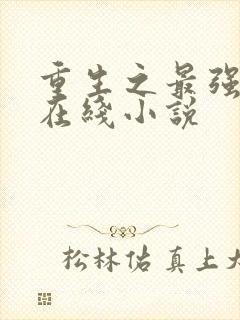 重生之最强
在綫小說
松林佑真上大